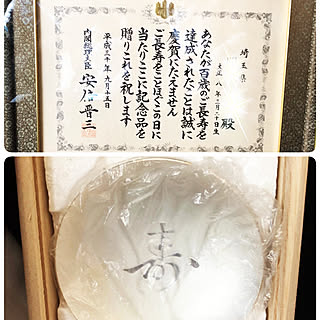 埼玉県
殿
大正八年三月二十日生
あなたが百歳のご長寿を
達成されたことは誠に
慶賀にたえません
ご長寿をことほぐこの日に
当たりここに記念品を
贈りこれを祝します
平成三十年九月十五日
内閣総理大臣 安倍晋三
寿